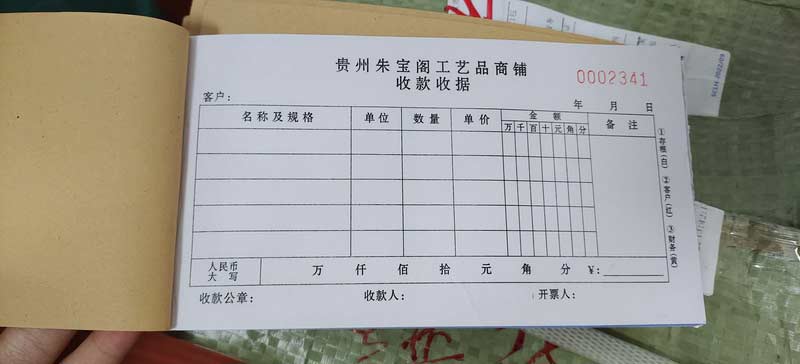 贵州朱宝阁工艺品商铺
收款收据
0002341
客户：
年 月 日
名称及规格 单位 数量 单价 金额 备注
万 千 百 十 元 角 分
①存根(白) ②客户(红) ③财务(黄)
人民币大写 万 仟 佰 拾 元 角 分 ¥：
收款公章： 收款人： 开票人：